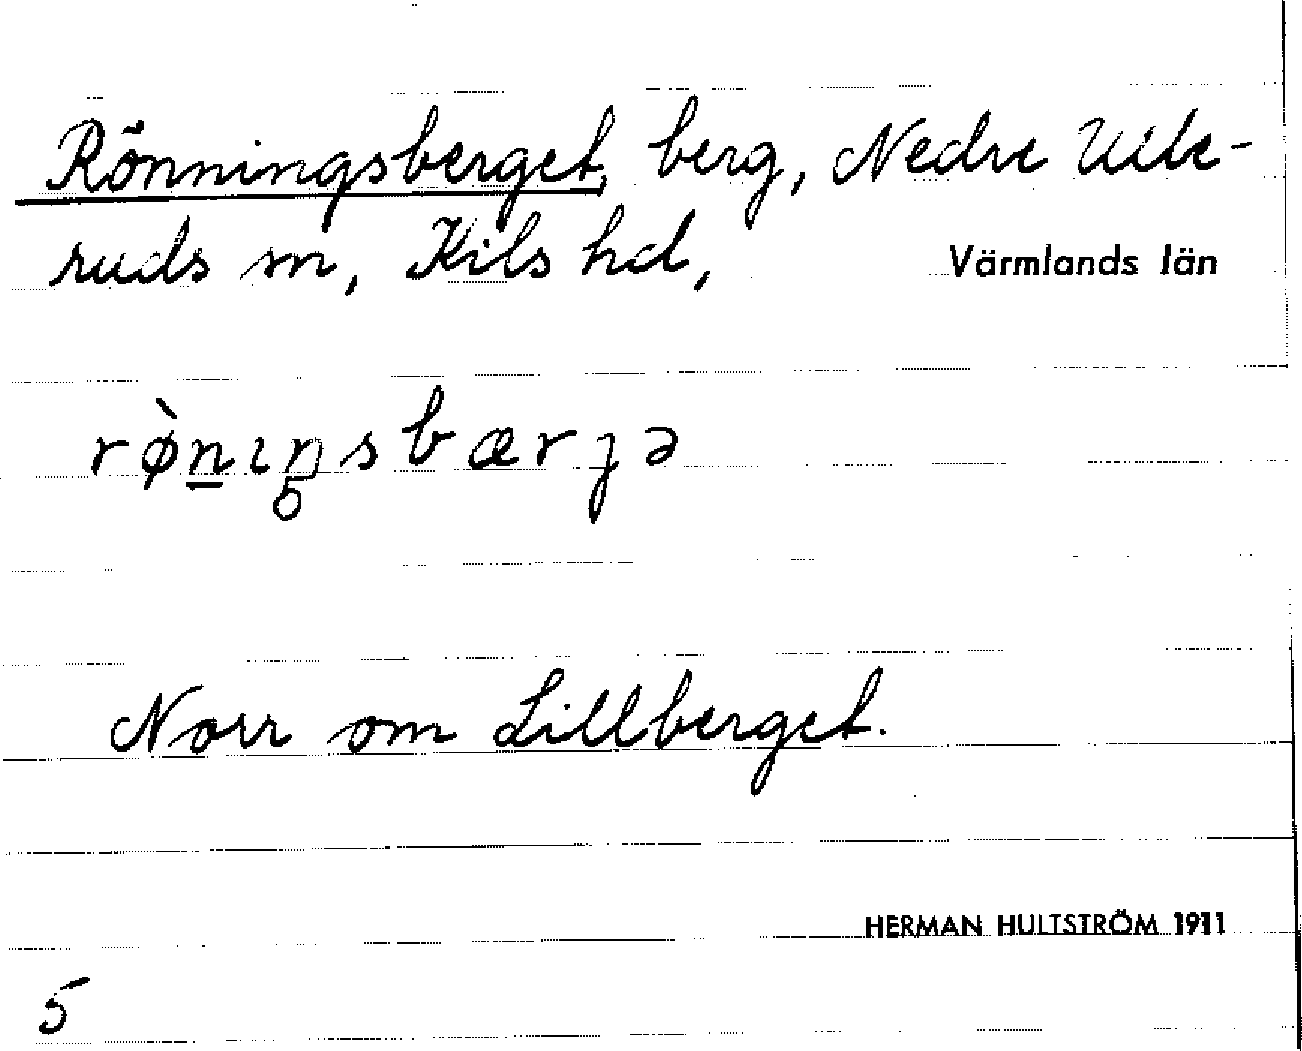 Rönningsberget, berg, Nedre Ulle-
ruds sn, Kils hd, Värmlands län
rø̀n̲ıŋsbærȷə
Norr om Lillberget.
HERMAN HULTSTRÖM 1911
5